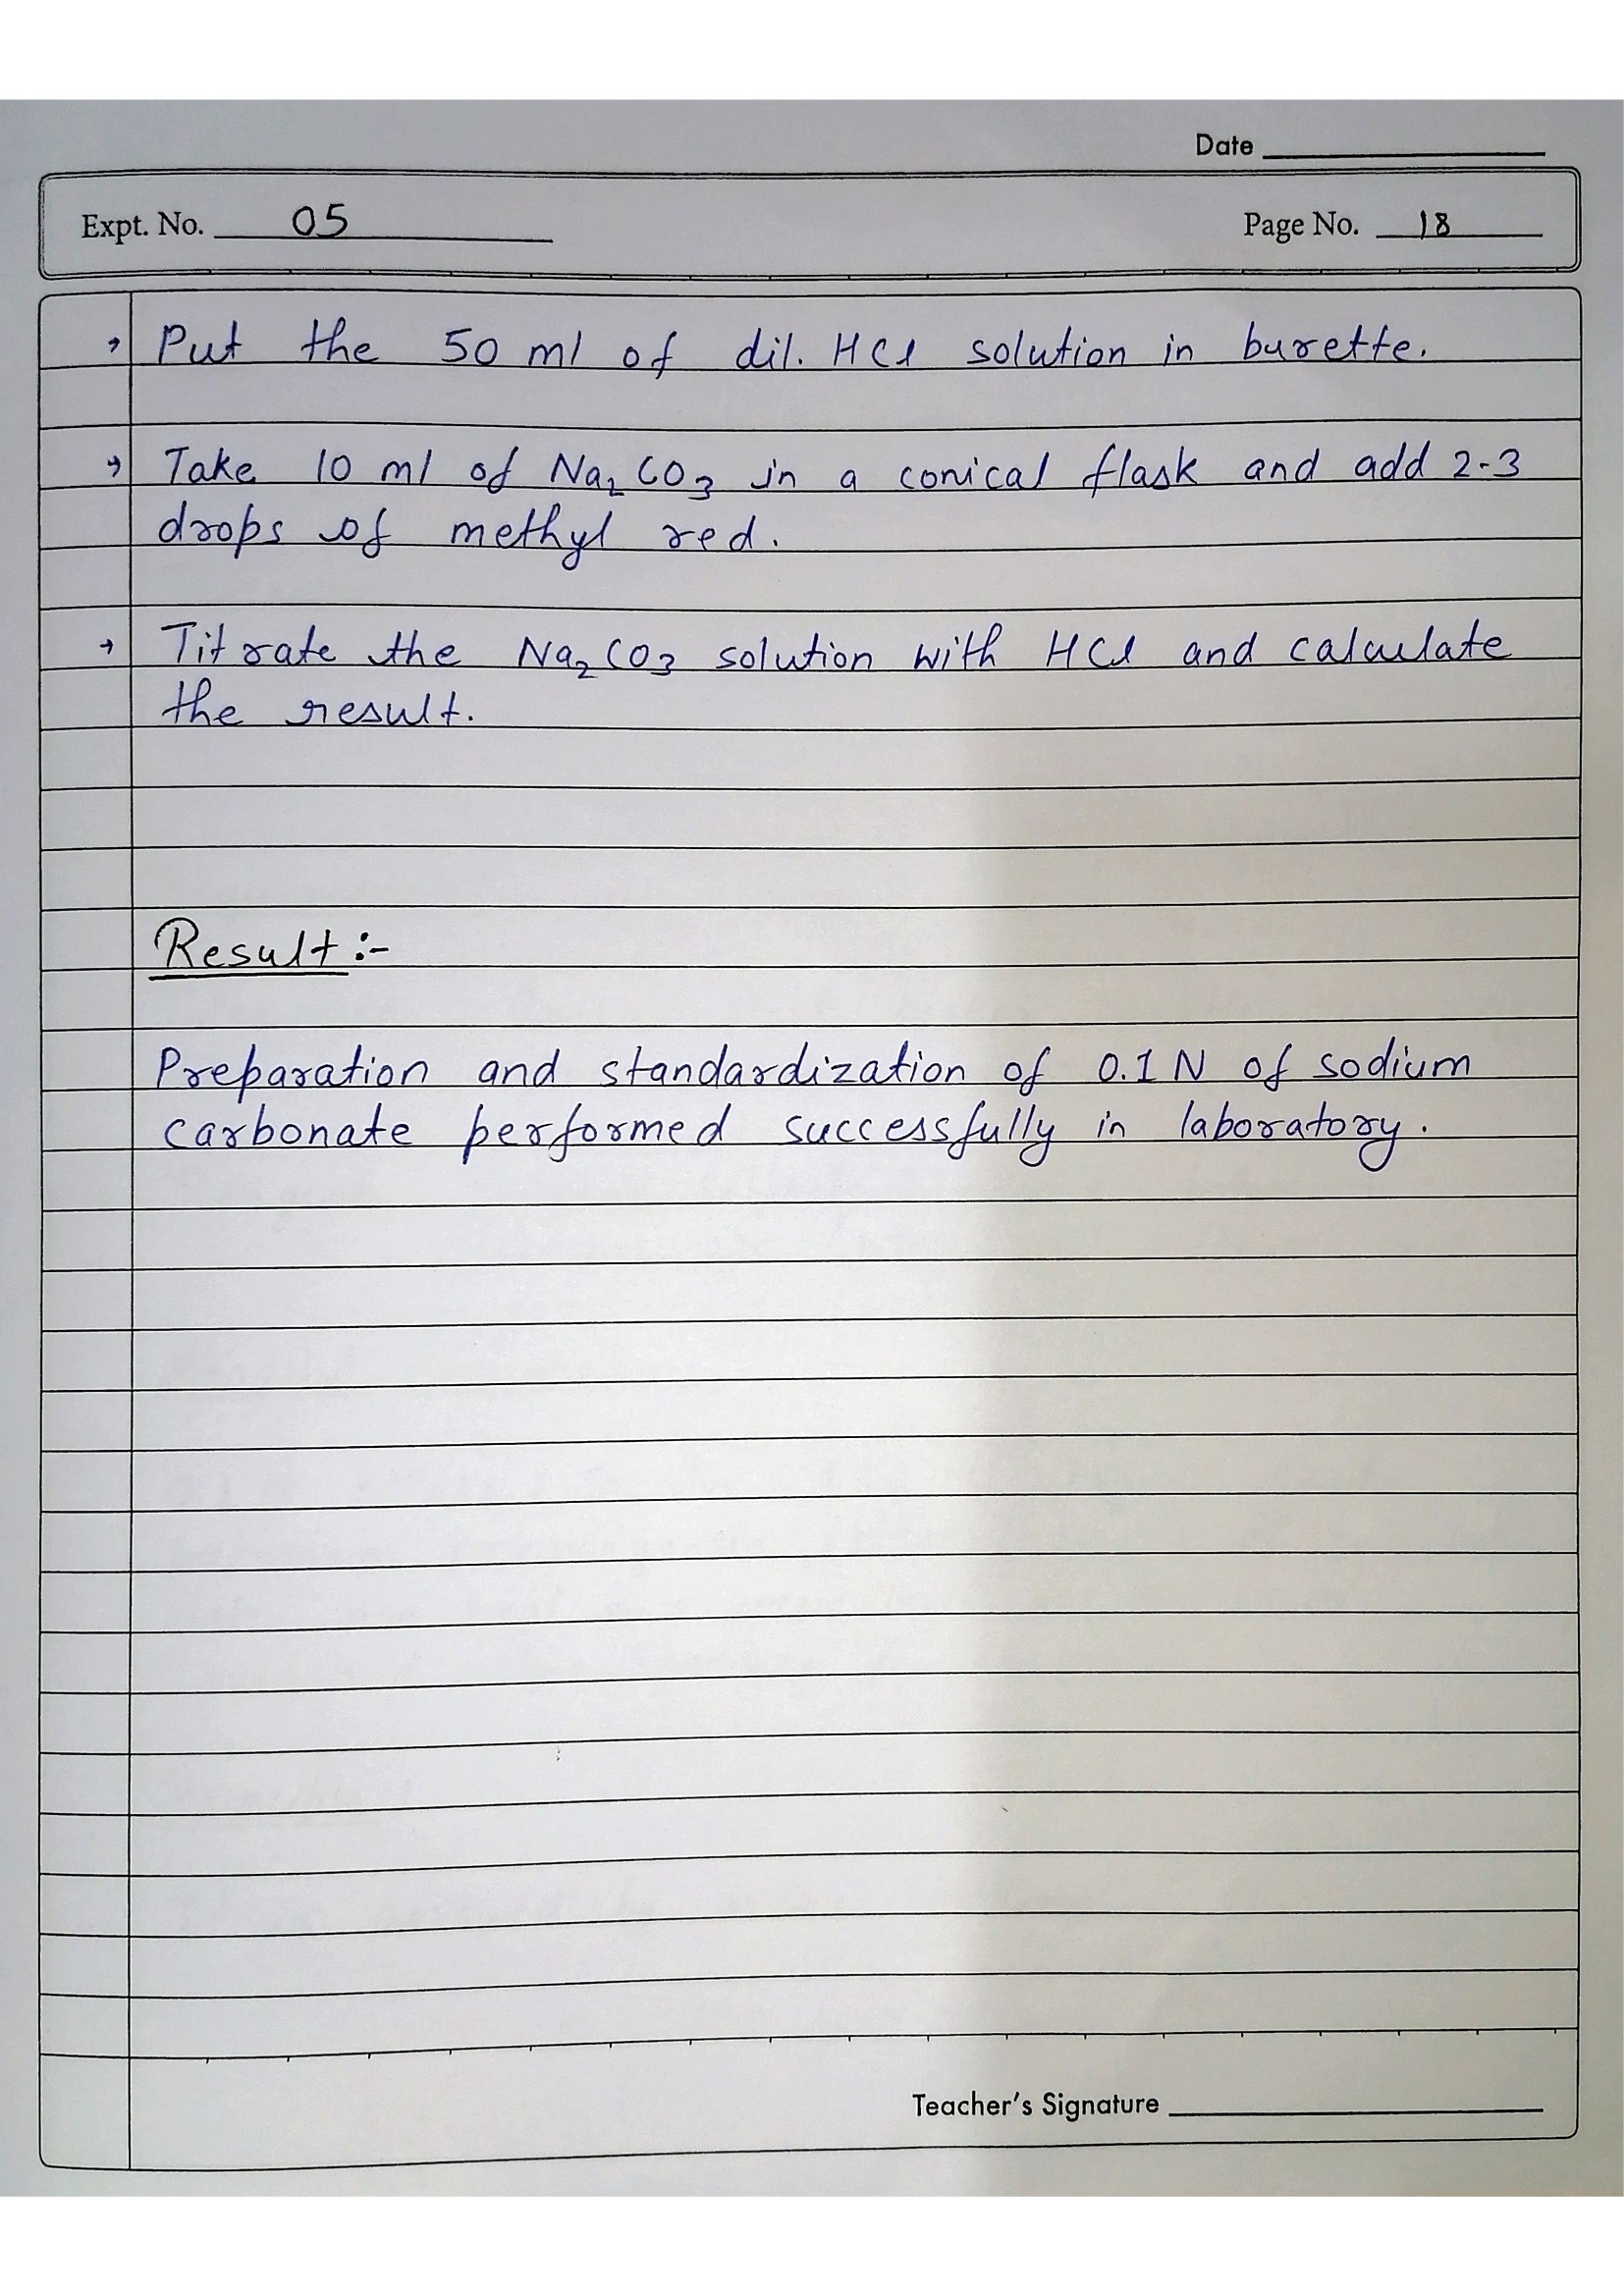 Date
Expt. No. 05 Page No. 18
→ Put the 50 ml of dil. HCl solution in burette.
→ Take 10 ml of Na₂CO₃ in a conical flask and add 2-3
drops of methyl red.
→ Titrate the Na₂CO₃ solution with HCl and calculate
the result.
Result :-
Preparation and standardization of 0.1 N of sodium
carbonate performed successfully in laboratory.
Teacher's Signature